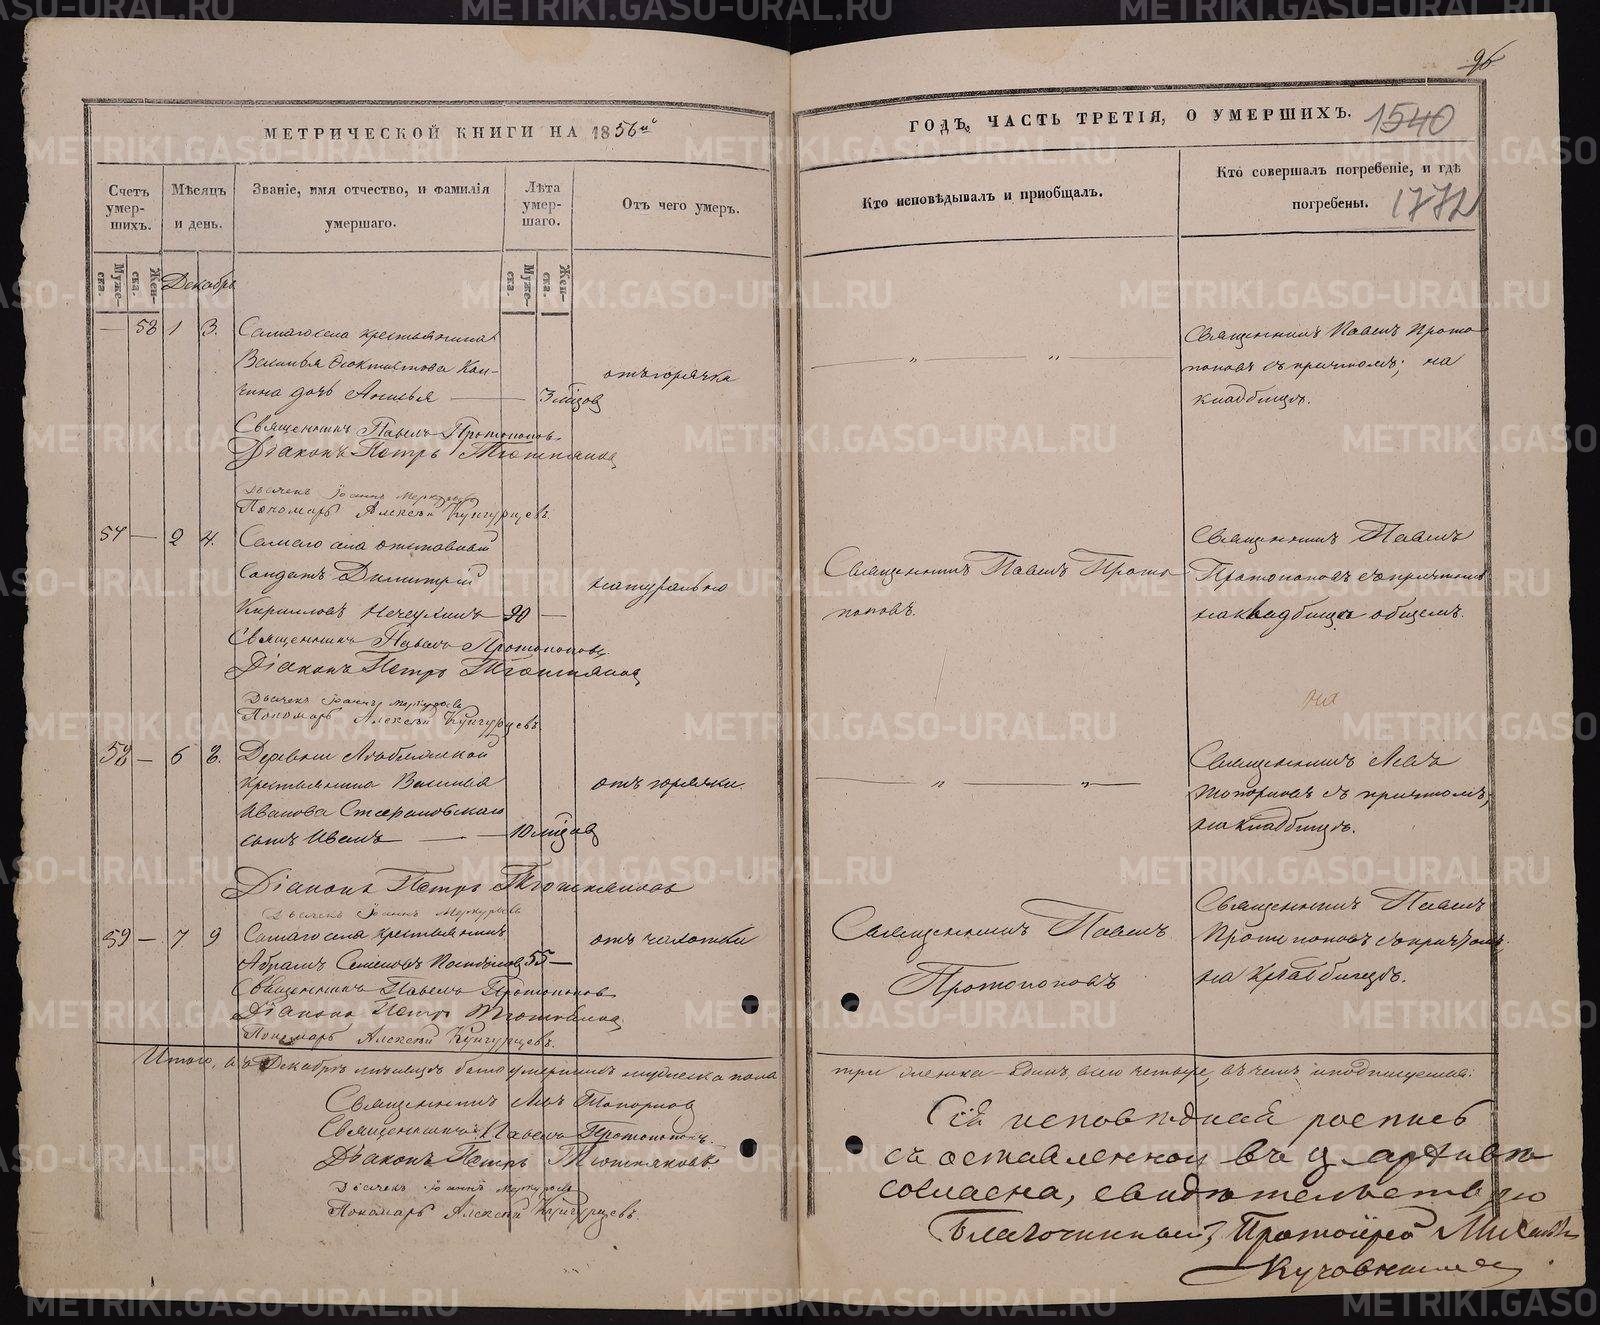 96
МЕТРИЧЕСКОЙ КНИГИ НА 1856й
ГОДЪ, ЧАСТЬ ТРЕТІЯ, О УМЕРШИХЪ. 1540
Счетъ умер-шихъ.
Мѣсяцъ и день.
Званіе, имя отчество, и фамилія умершаго.
Лѣта умер-шаго.
Отъ чего умеръ.
Кто исповѣдывалъ и пріобщалъ.
Кто совершалъ погребеніе, и гдѣ погребены. 1772
Муже-ска.
Жен-ска.
Декабрь
Муже-ска.
Жен-ска.
— 58 1 3. Самаго села крестьянина
Василья Ѳеоктистова
дочь — 3 мѣсцов
отъ горячки
Священникъ Павелъ Прото
поповъ съ причтомъ; на
кладбищѣ.
Священникъ Павелъ Протопоповъ
Діаконъ Петръ Тюшняковъ
Дьячекъ Іоаннъ Меркурьевъ
Пономарь Алексѣй Кунгурцевъ.
57 — 2 4. Самаго села отставный
Солдатъ Димитрій
Кирилловъ 90 —
натурально
Священникъ Павелъ Прото
поповъ.
Священникъ Павелъ
Протопоповъ съ причтомъ
на кладбищѣ общемъ.
Священникъ Павелъ Протопоповъ
Діаконъ Петръ Тюшняковъ
Дьячекъ Іоаннъ Меркурьевъ
Пономарь Алексѣй Кунгурцевъ
на
58 — 6 8. Деревни
крестьянина Василья
Иванова
сынъ Иванъ — 10 мѣсцов
отъ горячки.
Священникъ Левъ
Топорковъ съ причтомъ;
на кладбищѣ.
Діаконъ Петръ Тюшняковъ
Дьячекъ Іоаннъ Меркурьевъ
59 — 7 9 Самаго села крестьянинъ
Абрамъ Семеновъ 55 —
отъ чахотки
Священникъ Павелъ
Протопоповъ
Священникъ Павелъ
Протопоповъ съ причтомъ
на кладбищѣ.
Священникъ Павелъ Протопоповъ
Діаконъ Петръ Тюшняковъ
Пономарь Алексѣй Кунгурцевъ.
Итого, въ Декабрѣ мѣсяцѣ было умершихъ мужеска пола
три женска один, всего четыре, въ чемъ и подписуемся:
Священникъ Левъ Топорковъ
Священникъ Павелъ Протопоповъ.
Діаконъ Петръ Тюшняковъ
Дьячекъ Іоаннъ Меркурьевъ
Пономарь Алексѣй Кунгурцевъ.
Сій исповѣдный роспись
съ оставленной въ ц. архивѣ
согласна, свидѣтельствую
Благочинный, Протоіерей Михаилъ
METRIKI.GASO-URAL.RU